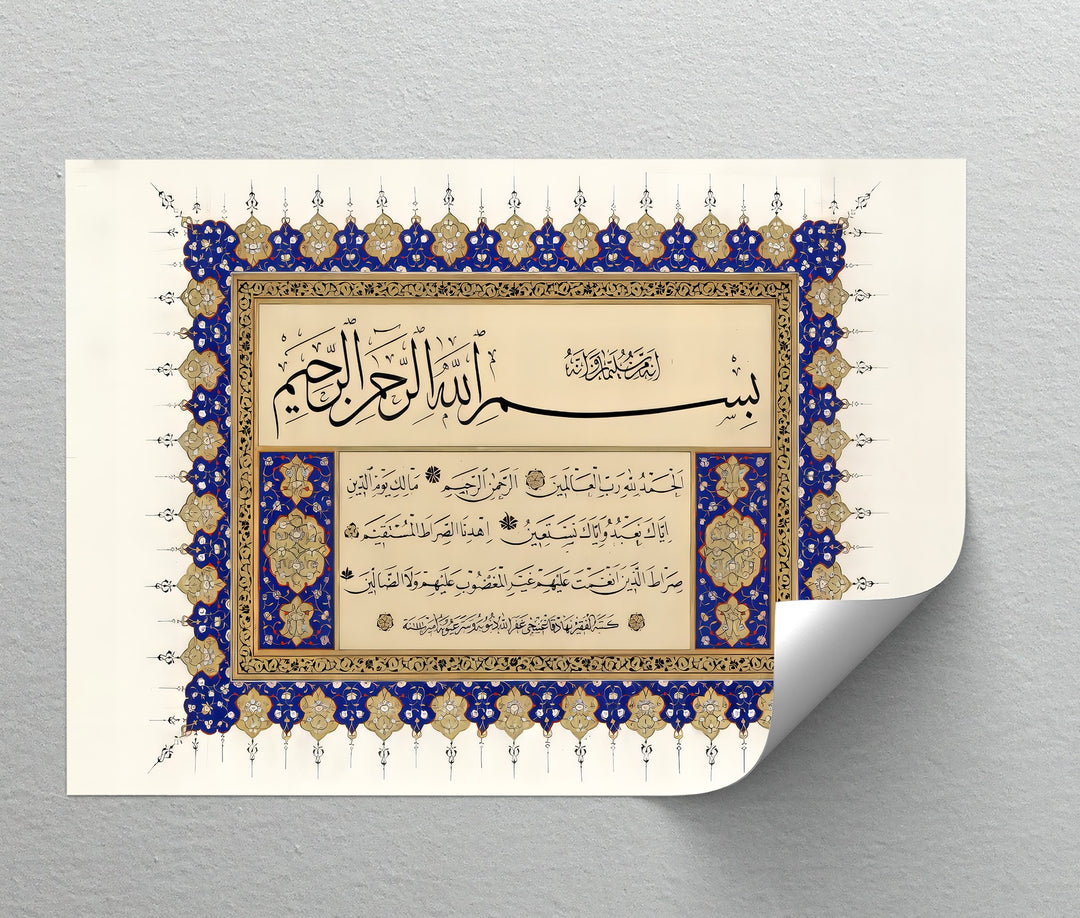 إنه من سليمان وإنه
بِسْمِ اللهِ الرَّحْمنِ الرَّحِيمِ
الحمد لله رب العالمين الرحمن الرحيم مالك يوم الدين
اياك نعبد واياك نستعين اهدنا الصراط المستقيم
صراط الذين انعمت عليهم غير المغضوب عليهم ولا الضالين
كتبه الفقير غفر الله ذنوبه وستر عيوبه